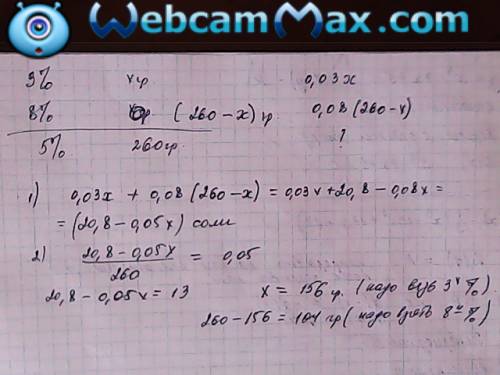 WebcamMax.com
3% x гр 0,03x
8% (260-x) гр 0,08(260-x)
5% 260 гр. ?
1) 0,03x + 0,08(260-x) = 0,03x+20,8-0,08x =
= (20,8-0,05x) соли
2) 20,8-0,05x / 260 = 0,05
20,8-0,05x = 13 x = 156 г. (надо взять 3%).
260-156 = 104 гр (надо взять 8%)